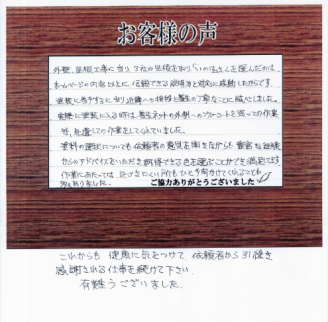 お客様の声
外壁、屋根工事に当り、3社の見積を取り「いのは」さんを選んだのは、
ホームページの内容以上に、信頼できる説明力と対応に感動したからです。
塗装に着手するに当り近隣への挨拶と養生の丁寧なことに感心しました。
実際に塗装に入る時は、養生ネットの外側へのブルーシートを張っての作業
等、配慮しての作業をしてくれていました。
塗料の選択についても、依頼者の意見を聞きながら、豊富な経験
からのアドバイスをいただき納得できる色を選ぶことができ満足です
作業にあたっては、気づきにくい所もひと声かけてくれることも
多くありました。
ご協力ありがとうございました
これからも健康に気をつけて、依頼者から引続き
感謝される仕事を続けて下さい。
有難うございました。